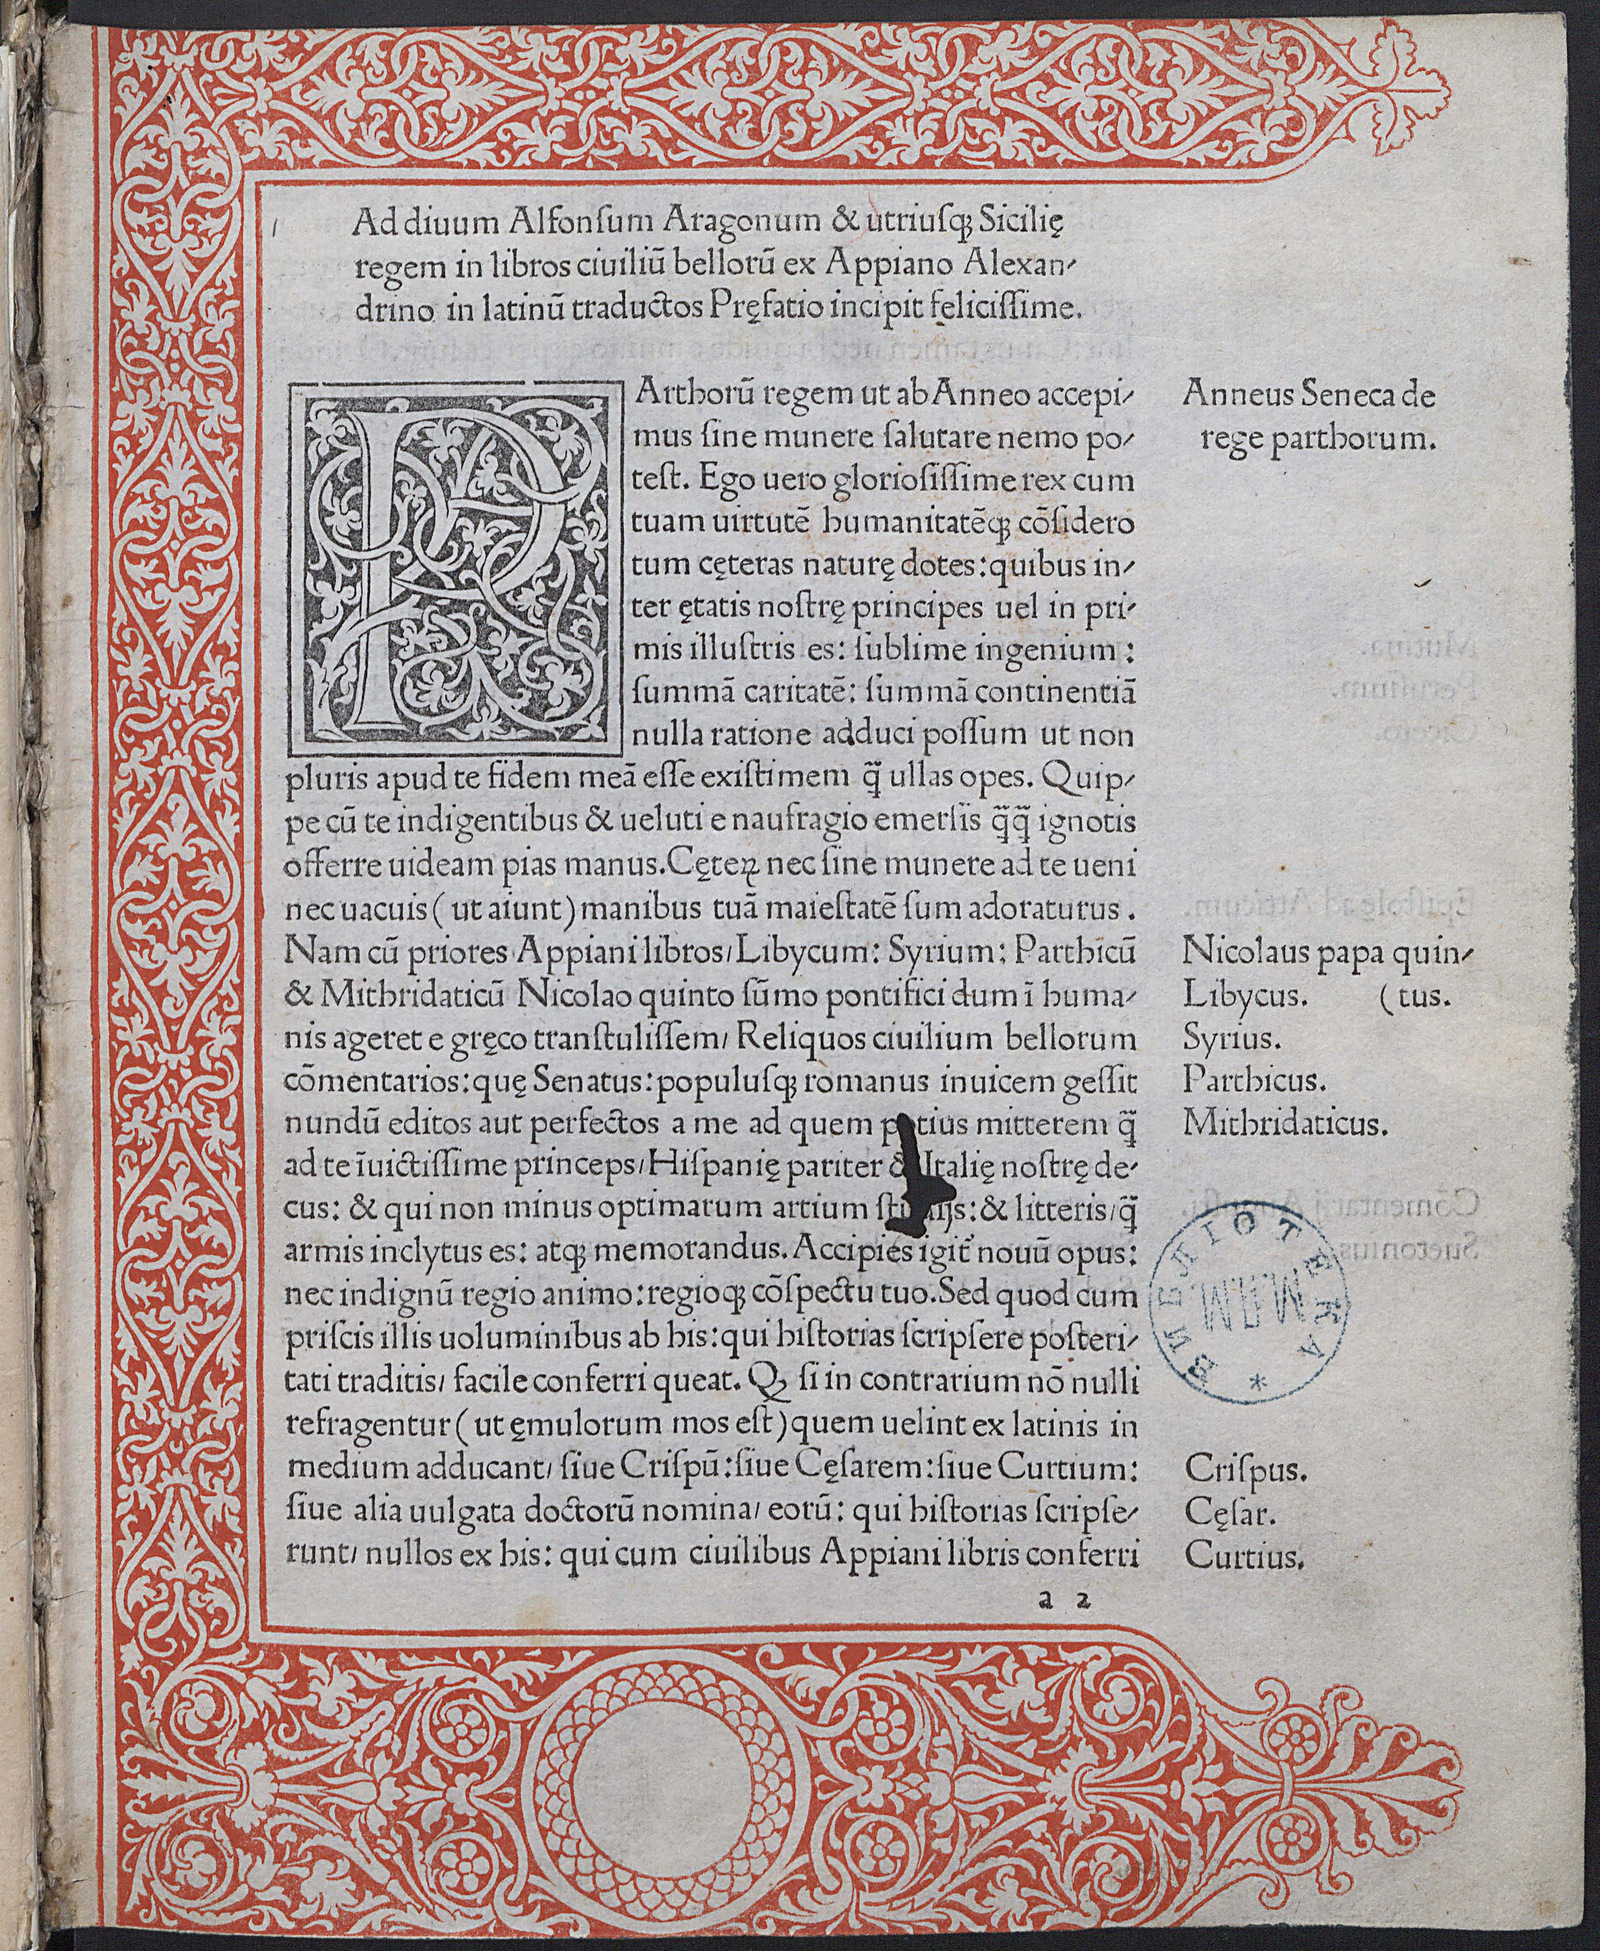 Ad diuum Alfonſum Aragonum & utriuſqꝫ Sicilię
regem in libros ciuiliū bellorū ex Appiano Alexan⸗
drino in latinū traductos Pręfatio incipit feliciſſime.
PArthorū regem ut ab Anneo accepi⸗
mus ſine munere ſalutare nemo po⸗
teſt. Ego uero glorioſiſſime rex cum
tuam uirtutē humanitatēqꝫ cōſidero
tum cęteras naturę dotes: quibus in⸗
ter ętatis noſtrę principes uel in pri⸗
mis illuſtris es: ſublime ingenium:
ſummā caritatē: ſummā continentiā
nulla ratione adduci poſſum ut non
pluris apud te fidem meā eſſe exiſtimem q̄ ullas opes. Quip⸗
pe cū te indigentibus & ueluti e naufragio emerſis q̄q̄ ignotis
offerre uideam pias manus. Cęteꝝ nec ſine munere ad te ueni
nec uacuis (ut aiunt) manibus tuā maieſtatē ſum adoraturus.
Nam cū priores Appiani libros/ Libycum: Syrium: Parthicū
& Mithridaticū Nicolao quinto ſūmo pontifici dum ī huma⸗
nis ageret e gręco tranſtuliſſem/ Reliquos ciuilium bellorum
cōmentarios: quę Senatus: populuſqꝫ romanus inuicem geſſit
nundū editos aut perfectos a me ad quem potius mitterem q̄
ad te īuictiſſime princeps/ Hiſpanię pariter & Italię noſtrę de⸗
cus: & qui non minus optimarum artium ſtudijs: & litteris/ q̄
armis inclytus es: atqꝫ memorandus. Accipies igit̄ nouū opus:
nec indignū regio animo: regioqꝫ cōſpectu tuo. Sed quod cum
priſcis illis uoluminibus ab his: qui hiſtorias ſcripſere poſteri⸗
tati traditis/ facile conferri queat. Qꝫ ſi in contrarium nō nulli
refragentur (ut ęmulorum mos eſt) quem uelint ex latinis in
medium adducant/ ſiue Criſpū: ſiue Cęſarem: ſiue Curtium:
ſiue alia uulgata doctorū nomina/ eorū: qui hiſtorias ſcripſe⸗
runt/ nullos ex his: qui cum ciuilibus Appiani libris conferri
a 2
Anneus Seneca de
rege parthorum.
Nicolaus papa quin⸗
Libycus. (tus.
Syrius.
Parthicus.
Mithridaticus.
БИБЛІОТЕКА
Criſpus.
Cęſar.
Curtius.